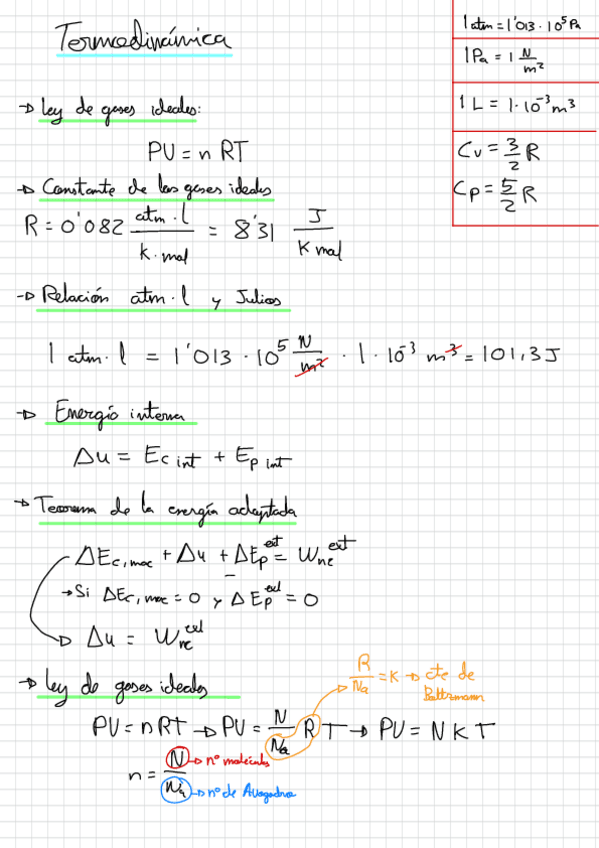 Termodinámica
1 atm = 1'013 · 10⁵ Pa
1 Pa = 1 N/m²
1 L = 1 · 10⁻³ m³
Cv = 3/2 R
Cp = 5/2 R
→ Ley de gases ideales:
PV = n RT
→ Constante de los gases ideales
R = 0'082 atm · l / K · mol = 8'31 J / K mol
→ Relación atm · l y Julios
1 atm · l = 1'013 · 10⁵ N/m² · 1 · 10⁻³ m³ = 101,3 J
→ Energía interna
Δu = Ec int + Ep int
→ Teorema de la energía adaptada
ΔEc, mac + Δu + ΔEp^ext = Wnc^ext
→ Si ΔEc, mac = 0 y ΔEp^ext = 0
→ Δu = Wnc^ext
R/Na = K → cte de
Boltzmann
→ Ley de gases ideales
PV = n RT → PV = N/Na R T → PV = N K T
n = N/Na
N → nº moléculas
Na → nº de Avogadro